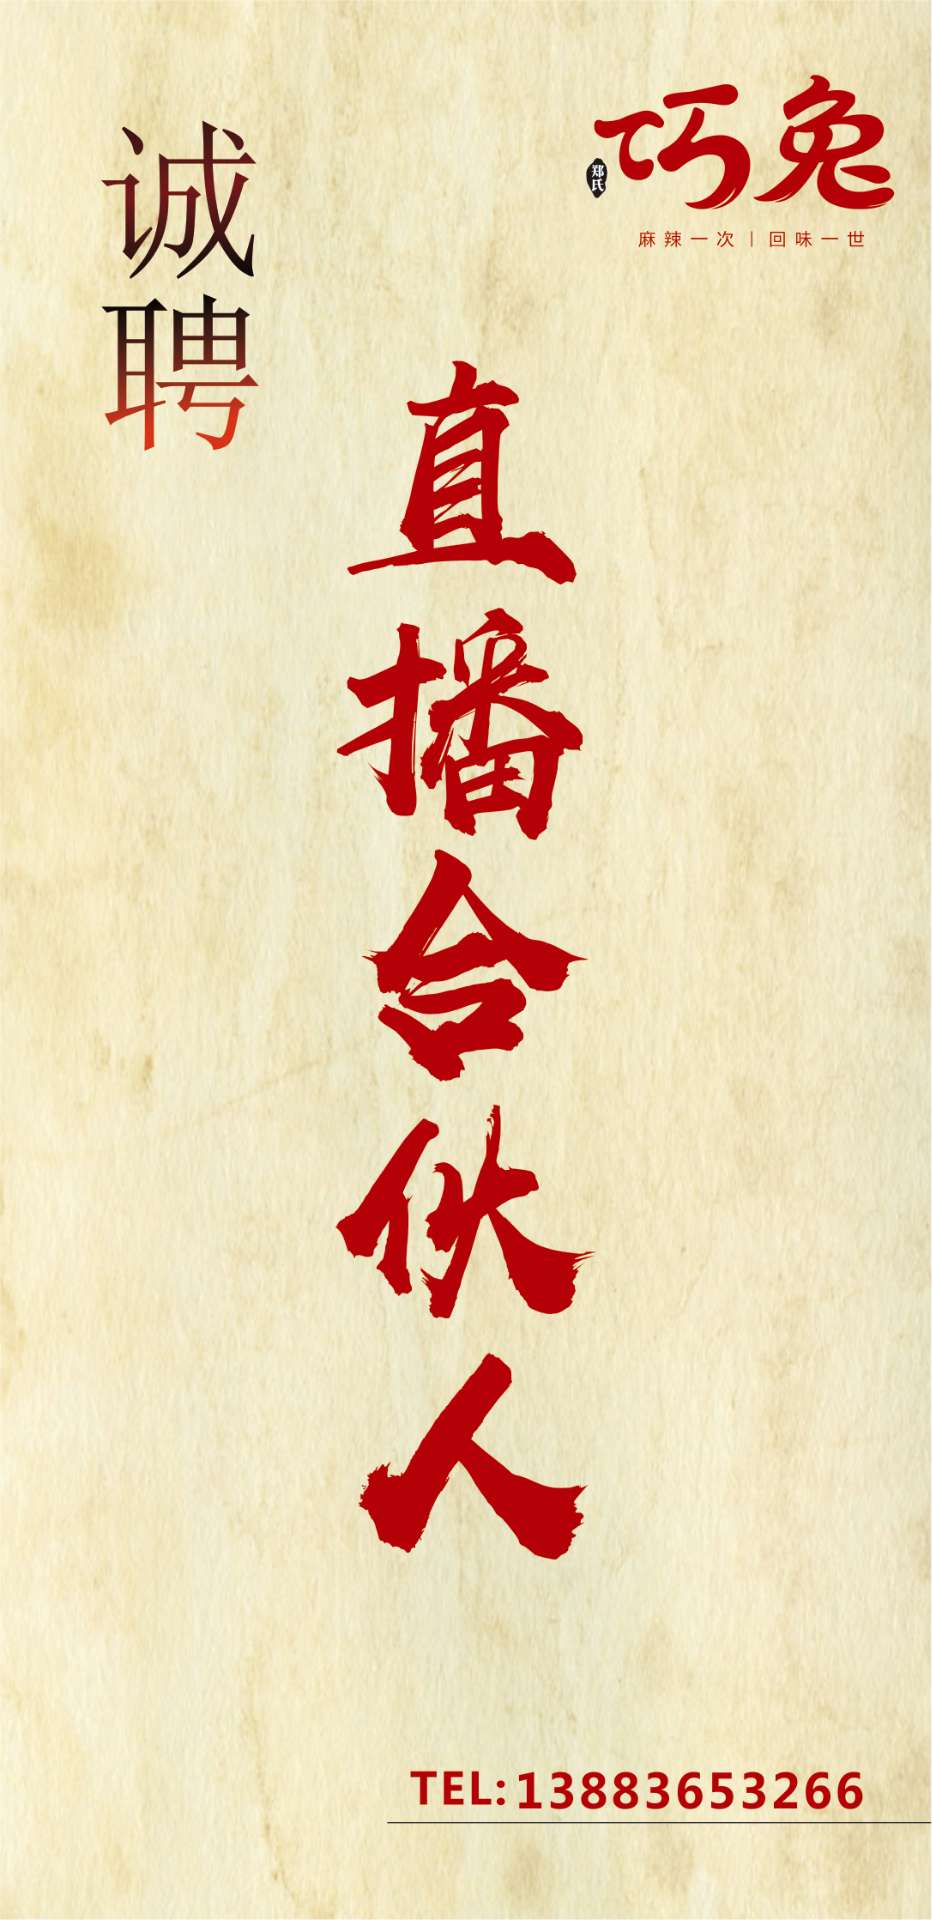 诚聘
巧兔
郑氏
麻辣一次|回味一世
直播合伙人
TEL:13883653266